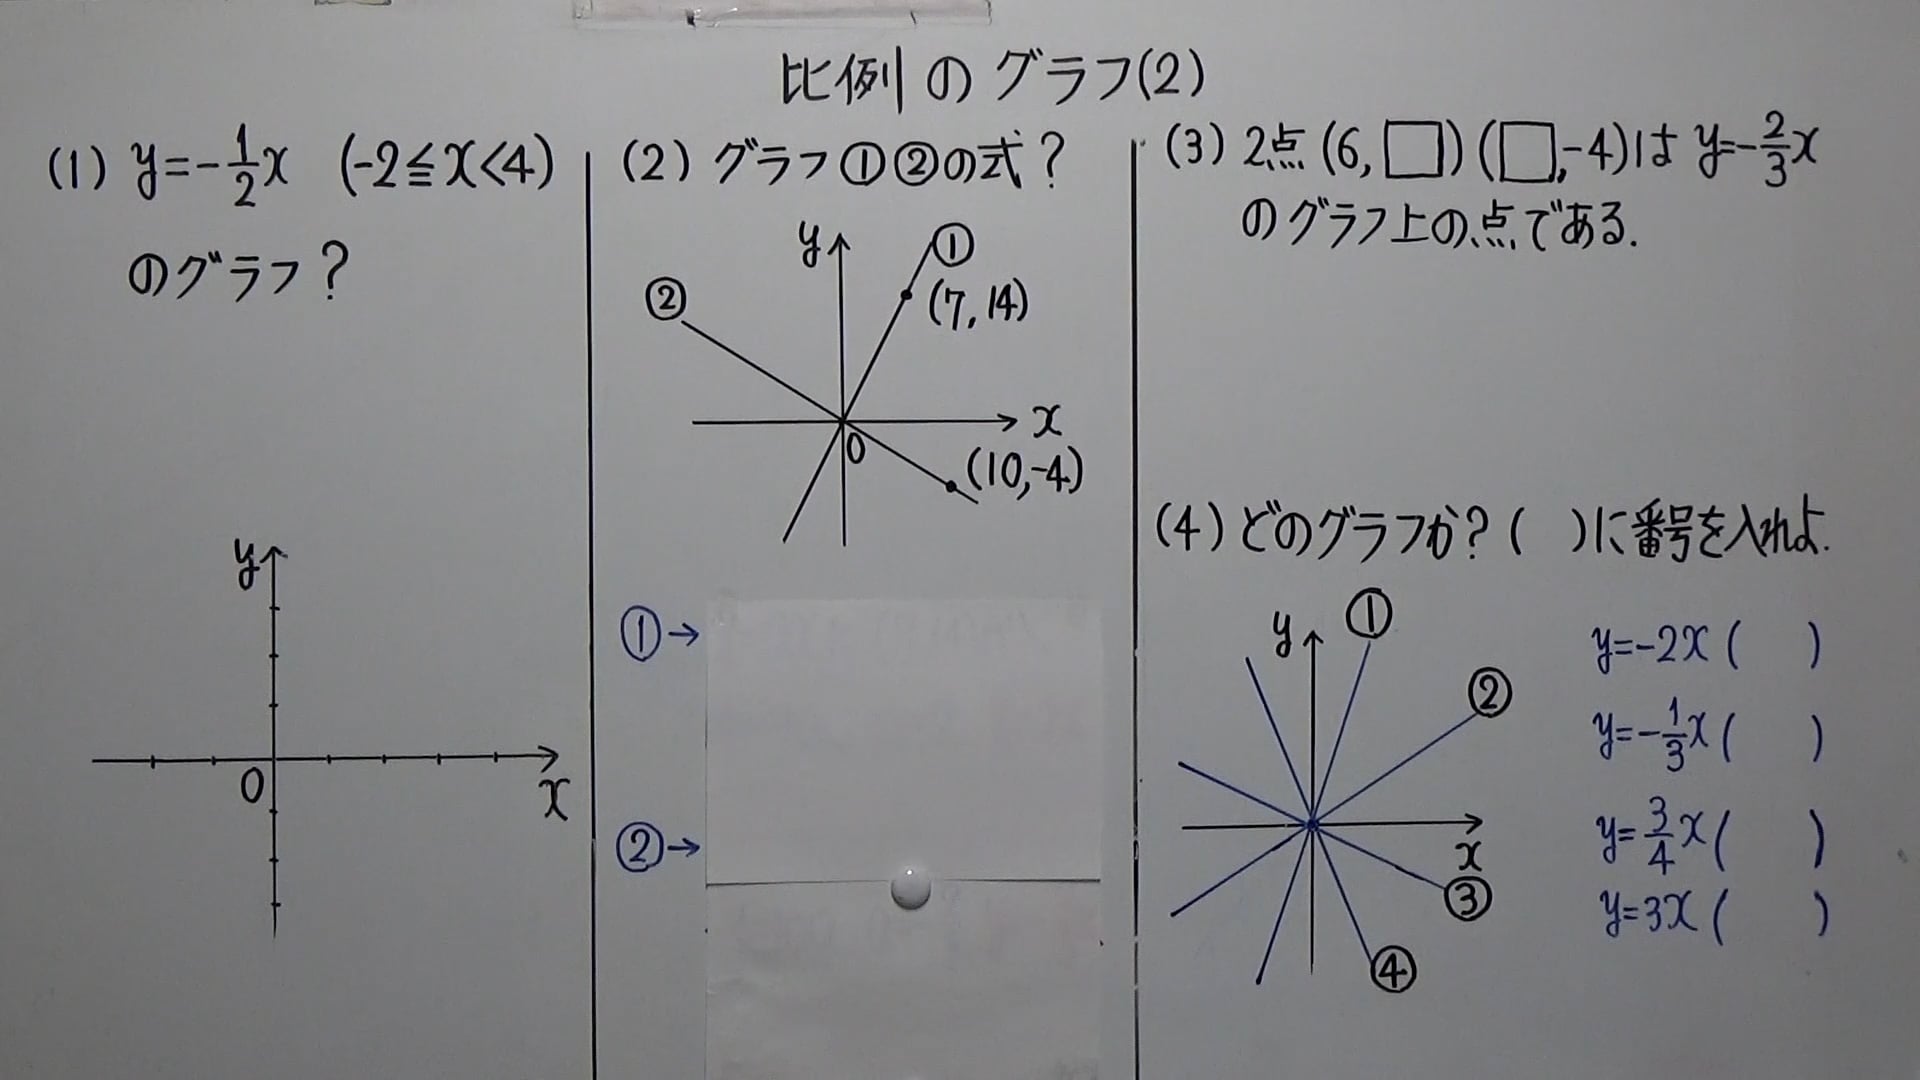 比例のグラフ(2)
(1) y=-1/2x (-2≦x<4)
のグラフ?
y
0
x
(2) グラフ①②の式?
y
①
(7,14)
②
x
0
(10,-4)
①→
②→
(3) 2点(6,□)(□,-4)は y=-2/3x
のグラフ上の点である.
(4) どのグラフか?( )に番号を入れよ.
y
①
②
x
③
④
y=-2x( )
y=-1/3x( )
y=3/4x( )
y=3x( )